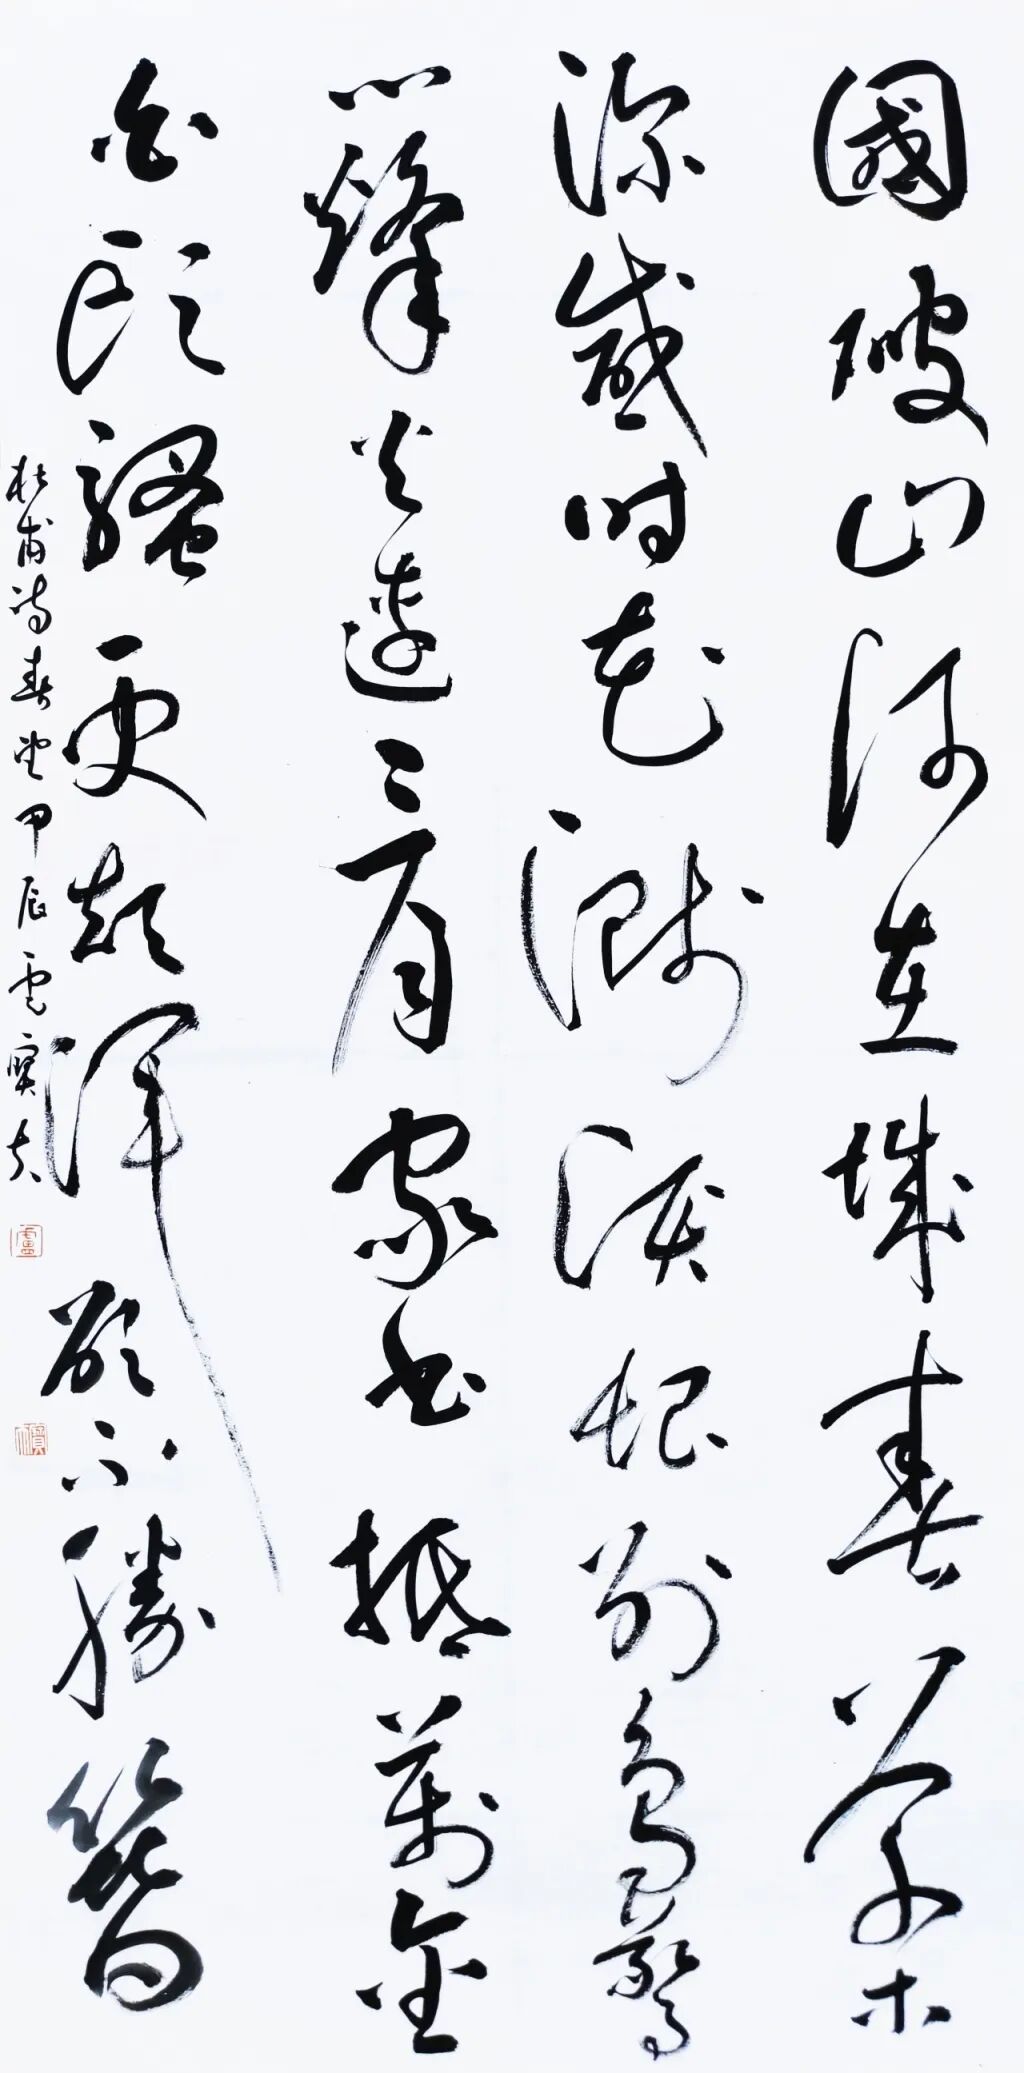 國破山河在城春草木
深感時花濺淚恨別鳥驚
心烽火連三月家書抵萬金
白頭騷更短渾欲不勝簪
杜甫詩春望甲辰
盧